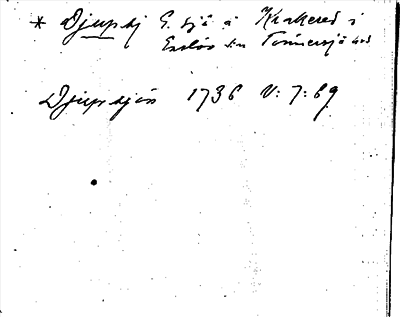 * Djupsj G. sjö å Krakered i
Enslövs sn Tönnersjö hd
Djupsjön 1736 V: 7: 69